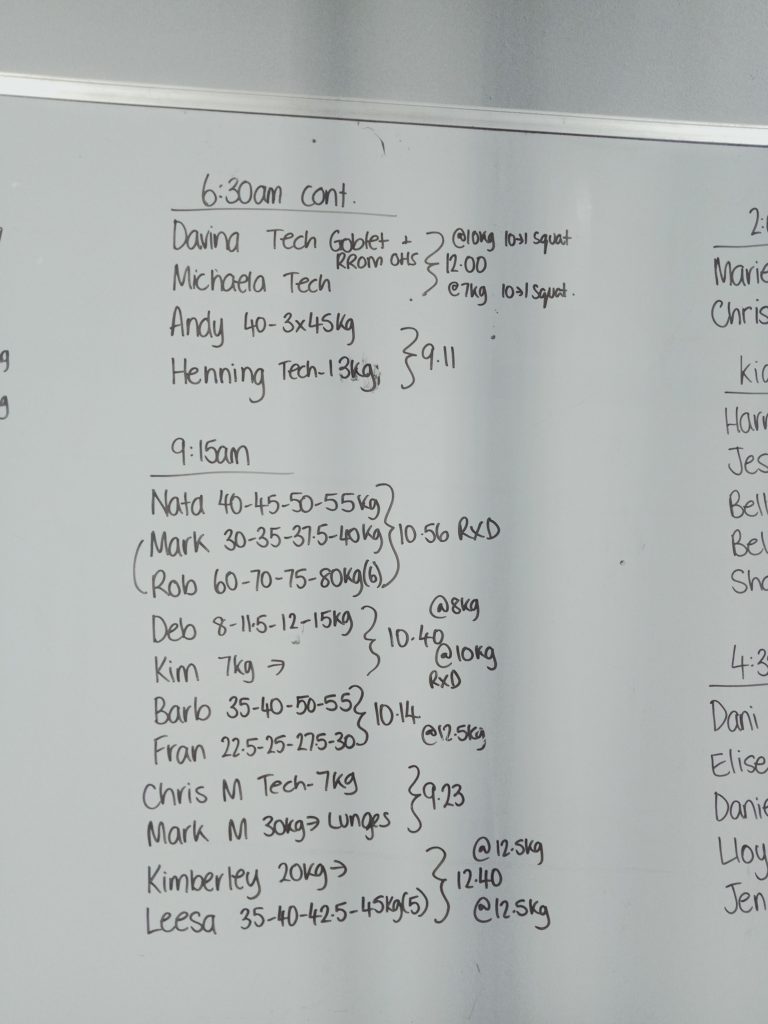 6:30am cont.
Davina Tech Goblet + @10kg 10→1 Squat
RROM OHS 12:00
Michaela Tech @7kg 10→1 Squat.
Andy 40-3x45kg
Henning Tech-13kg 9.11
9:15am
Nata 40-45-50-55kg
Mark 30-35-37.5-40kg 10.56 RXD
Rob 60-70-75-80kg(6)
Deb 8-11.5-12-15kg @8kg
10.40
Kim 7kg → @10kg
RXD
Barb 35-40-50-55 10.14
Fran 22.5-25-27.5-30 @12.5kg
Chris M Tech-7kg 9.23
Mark M 30kg→ Lunges
Kimberley 20kg→ @12.5kg
12.40
Leesa 35-40-42.5-45kg(5) @12.5kg
g
g
2:
Marie
Chris
kid
Harr
Jes
Bell
Bel
Sha
4:3
Dani
Elise
Danie
Lloy
Jen